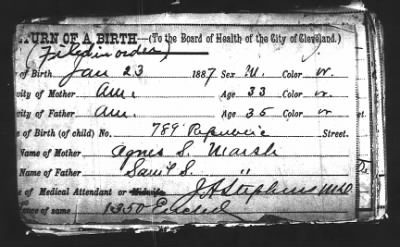 TURN OF A BIRTH—(To the Board of Health of the City of Cleveland.)
(Filed in order)
of Birth Jan 23 1887 Sex M. Color W.
ity of Mother Am. Age 33 Color W.
ity of Father Am. Age 35 Color W.
e of Birth (of child) No. 789 Republic Street.
Name of Mother Agnes S. Marsh
Name of Father Saml S. "
e of Medical Attendant or Midwife J A Stephens M D
ence of same 1350 Euclid